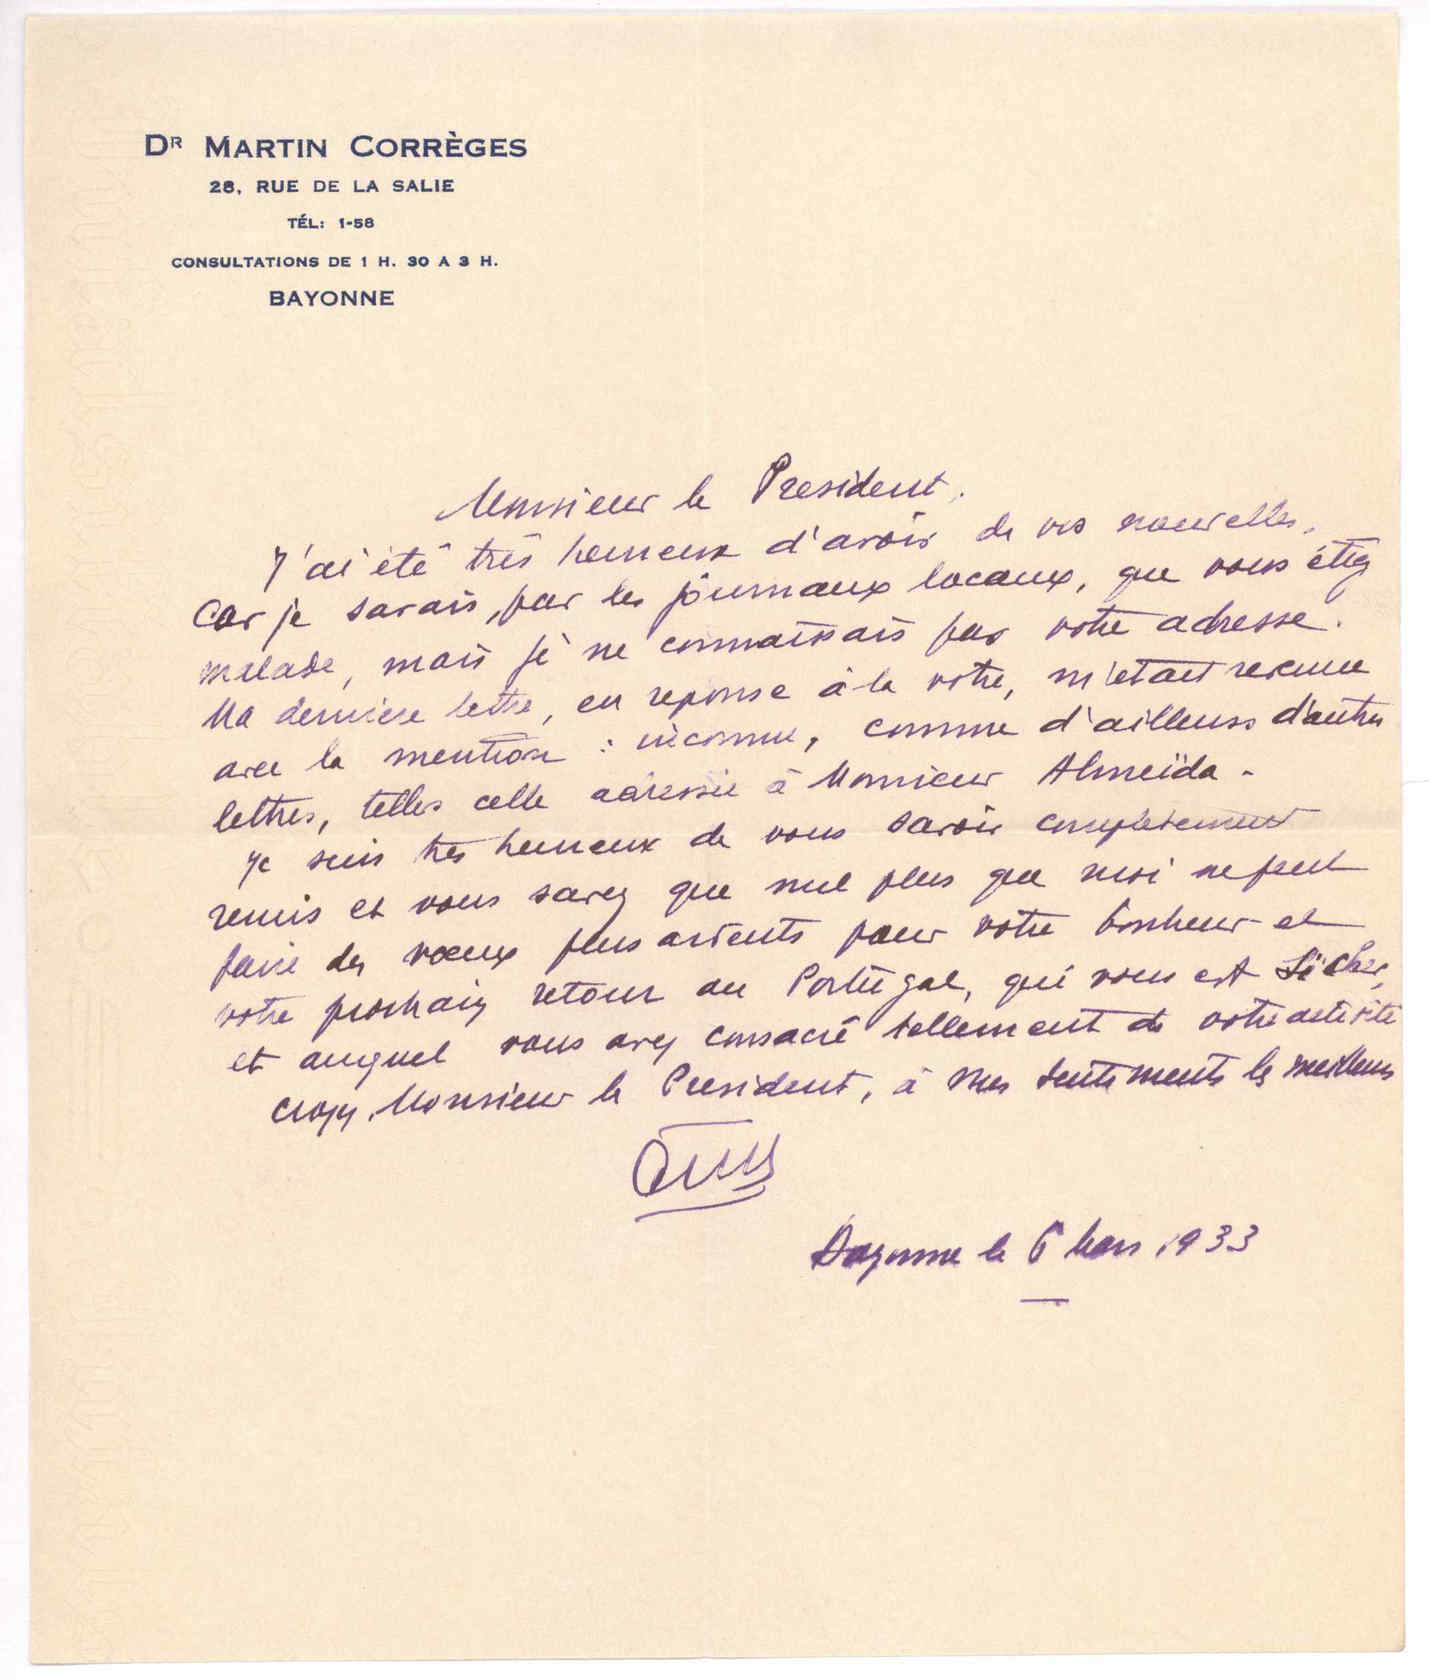 DR MARTIN CORRÈGES
28, RUE DE LA SALIE
TÉL: 1-58
CONSULTATIONS DE 1 H. 30 A 3 H.
BAYONNE
Monsieur le President.
J'ai été très heureux d'avoir de vos nouvelles,
Car je savais, par les journaux locaux, que vous étiez
malade, mais je ne connaissais pas votre adresse.
Ma derniere lettre, en reponse à la votre, m'etait revenue
avec la mention : inconnu, comme d'ailleurs d'autres
lettres, telles celle adressée à Monsieur Almeïda -
Je suis tres heureux de vous savoir completement
remis et vous savez que nul plus que moi ne peut
faire des vœux plus ardents pour votre bonheur et
votre prochain retour au Portugal, qui vous est si cher,
et auquel vous avez consacré tellement de votre activité
Croyez, Monsieur le President, à mes sentiments les meilleurs
Bayonne le 6 Mars 1933